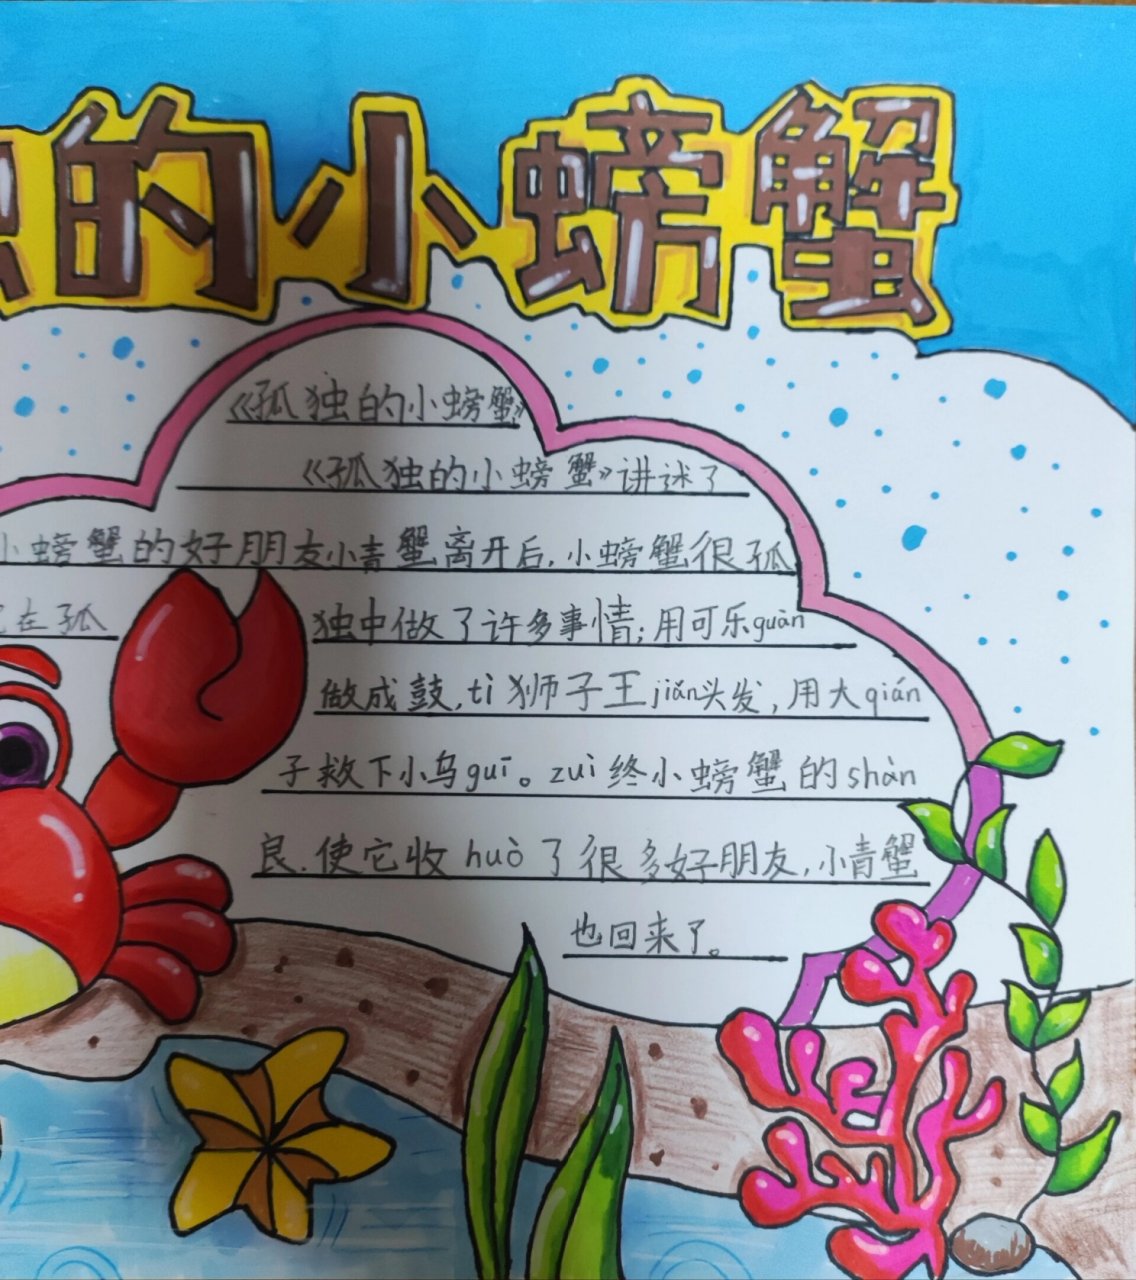 的小螃蟹
《孤独的小螃蟹》
《孤独的小螃蟹》讲述了
小螃蟹的好朋友小青蟹离开后,小螃蟹很孤
在孤
独中做了许多事情;用可乐guàn
做成鼓,tì狮子王jiǎn头发,用大qián
子救下小乌guī。zuì终小螃蟹的shàn
良.使它收huò了很多好朋友,小青蟹
也回来了。